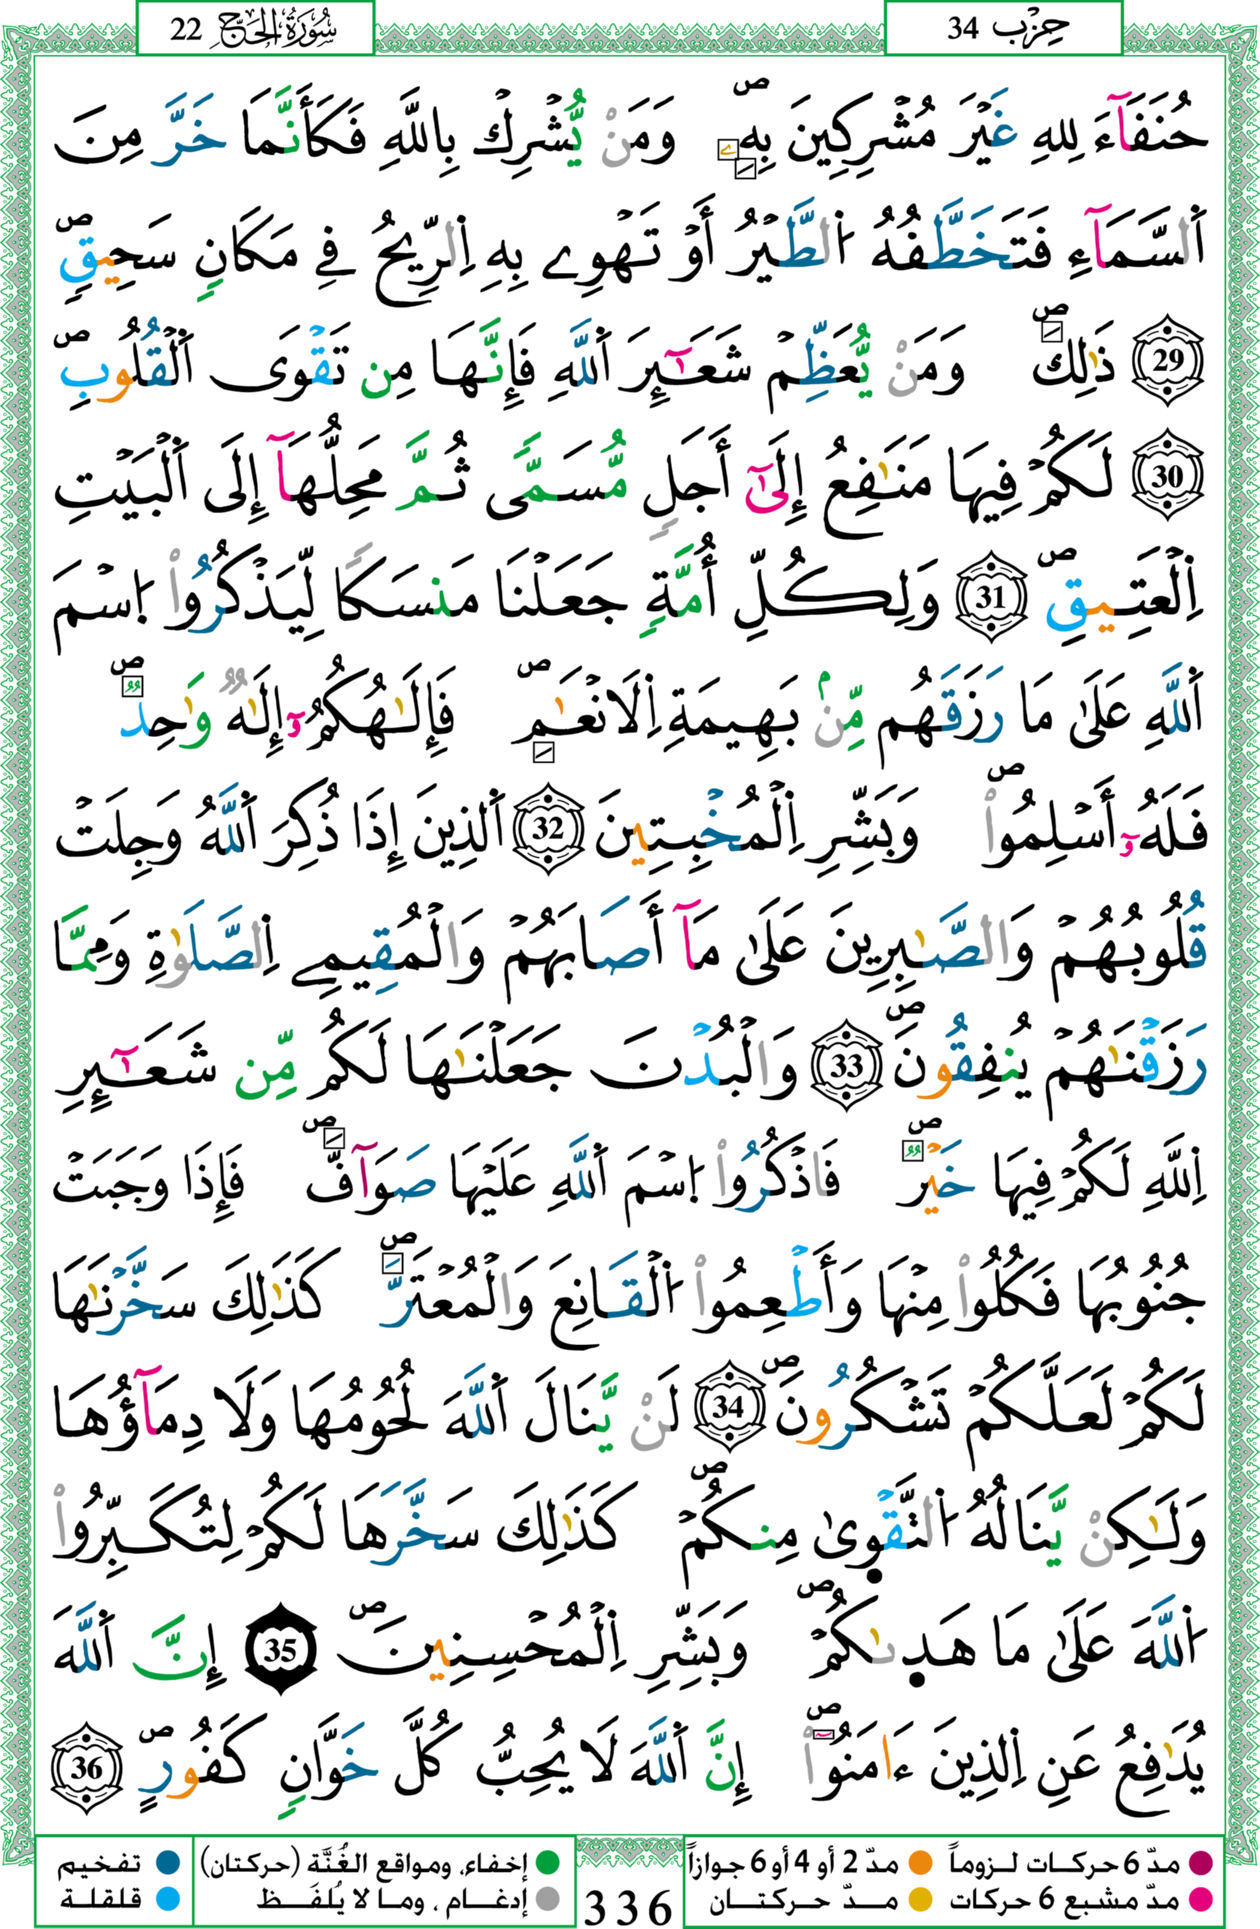 حِزْب 34
سُورَةُ الحَجِّ 22
حُنَفَآءَ لِلهِ غَيْرَ مُشْرِكِينَ بِهِۦۖ وَمَنْ يُّشْرِكْ بِاللَّهِ فَكَأَنَّمَا خَرَّ مِنَ
اَ۬لسَّمَآءِ فَتَخَطَّفُهُ اُ۬لطَّيْرُ أَوْ تَهْوِے بِهِ اِ۬لرِّيحُ فِے مَكَانٖ سَحِيقٖۖ
29 ذَٰلِكَۖ وَمَنْ يُّعَظِّمْ شَعَـٰٓئِرَ اَ۬للَّهِ فَإِنَّهَا مِن تَقْوَى اَ۬لْقُلُوبِۖ
30 لَكُمْ فِيهَا مَنَـٰفِعُ إِلَىٰٓ أَجَلٖ مُّسَمّٗى ثُمَّ مَحِلُّهَآ إِلَى اَ۬لْبَيْتِ
اِ۬لْعَتِيقِۖ 31 وَلِكُلِّ أُمَّةٖ جَعَلْنَا مَنسَكاٗ لِّيَذْكُرُواْ اُ۪سْمَ
اَ۬للَّهِ عَلَىٰ مَا رَزَقَهُم مِّنۢ بَهِيمَةِ اِ۬لَانْعَـٰمِۖ فَإِلَـٰهُكُمُۥٓ إِلَـٰهٞ وَٰحِدٞۖ
فَلَهُۥٓ أَسْلِمُواْۖ وَبَشِّرِ اِ۬لْمُخْبِتِينَ 32 اَ۬لذِينَ إِذَا ذُكِرَ اَ۬للَّهُ وَجِلَتْ
قُلُوبُهُمْ وَالصَّـٰبِرِينَ عَلَىٰ مَآ أَصَابَهُمْ وَالْمُقِيمِے اِ۬لصَّلَوٰةِ وَمِمَّا
رَزَقْنَـٰهُمْ يُنفِقُونَۖ 33 وَالْبُدْنَ جَعَلْنَـٰهَا لَكُم مِّن شَعَـٰٓئِرِ
اِ۬للَّهِ لَكُمْ فِيهَا خَيْرٞۖ فَاذْكُرُواْ اُ۪سْمَ اَ۬للَّهِ عَلَيْهَا صَوَآفَّۖ فَإِذَا وَجَبَتْ
جُنُوبُهَا فَكُلُواْ مِنْهَا وَأَطْعِمُواْ اُ۬لْقَانِعَ وَالْمُعْتَرَّۖ كَذَٰلِكَ سَخَّرْنَـٰهَا
لَكُمْ لَعَلَّكُمْ تَشْكُرُونَۖ 34 لَنْ يَّنَالَ اَ۬للَّهَ لُحُومُهَا وَلَا دِمَآؤُهَا
وَلَـٰكِنْ يَّنَالُهُ اُ۬لتَّقْوٜىٰ مِنكُمْۖ كَذَٰلِكَ سَخَّرَهَا لَكُمْ لِتُكَبِّرُواْ
اُ۬للَّهَ عَلَىٰ مَا هَدٜىٰكُمْۖ وَبَشِّرِ اِ۬لْمُحْسِنِينَۖ 35 إِنَّ اَ۬للَّهَ
يُدَٰفِعُ عَنِ اِ۬لذِينَ ءَامَنُوٓاْۖ إِنَّ اَ۬للَّهَ لَا يُحِبُّ كُلَّ خَوَّانٖ كَفُورٍۖ 36
مدّ 6 حركات لـزوماً
مدّ 2 أو 4 أو 6 جوازاً
مدّ مشبع 6 حركات
مـدّ حـركتــان
336
إخفاء، ومواقع الغُنَّة (حركتان)
إدغـام ، ومـا لا يُلفَـظ
تفخيم
قلقلة